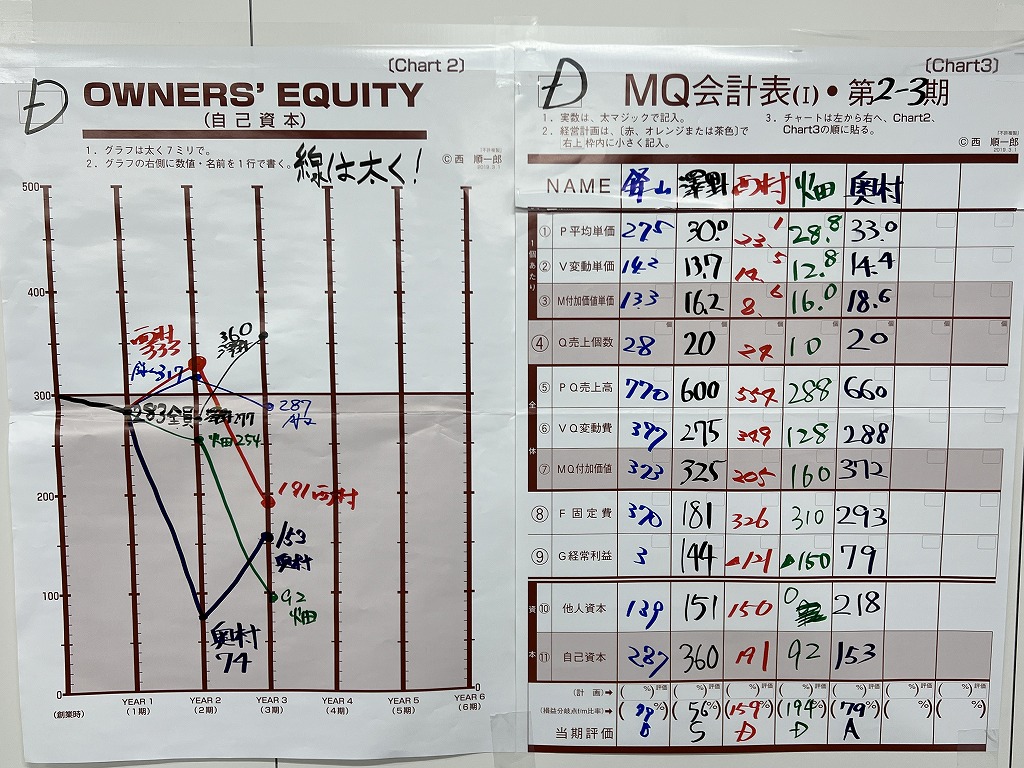 (Chart 2)
Đ OWNERS' EQUITY
(自己資本)
1. グラフは太く7ミリで。
2. グラフの右側に数値・名前を1行で書く。
線は太く!
[不許複製]
2019.3.1
© 西 順一郎
500
400
300
200
100
0
0
西村
333
317
360
澤野
283 全員
277
287
畑 254
191 西村
153
奥村
92
畑
奥村
74
(創業時)
YEAR 1
(1期)
YEAR 2
(2期)
YEAR 3
(3期)
YEAR 4
(4期)
YEAR 5
(5期)
YEAR 6
(6期)
(Chart3)
Đ MQ会計表(I)・第2-3期
1. 実数は、太マジックで記入。
2. 経営計画は、〔赤、オレンジまたは茶色〕で
右上枠内に小さく記入。
3. チャートは左から右へ、Chart2、
Chart3の順に貼る。
[不許複製]
2019.3.1
© 西 順一郎
NAME 山 澤野 西村 畑田 奥村
1個あたり
① P平均単価 27.5 30.0 23.1 28.8 33.0
② V変動単価 14.2 13.7 14.5 12.8 14.4
③ M付加価値単価 13.3 16.2 8.6 16.0 18.6
④ Q売上個数 28 20 24 10 20
個 個 個 個 個 個 個
全体
⑤ PQ売上高 770 600 554 288 660
⑥ VQ変動費 397 275 349 128 288
⑦ MQ付加価値 373 325 205 160 372
⑧ F固定費 370 181 326 310 293
⑨ G経常利益 3 144 ▲121 ▲150 79
資本
⑩ 他人資本 139 151 150 0 218
⑪ 自己資本 287 360 191 92 153
(計 画)➡ ( %)評価 ( %)評価 ( %)評価 ( %)評価 ( %)評価 ( %)評価 ( %)評価
(損益分岐点f/m比率)➡ (99%) (56%) (159%) (194%) (79%) ( %) ( %)
当期評価 B S D D A